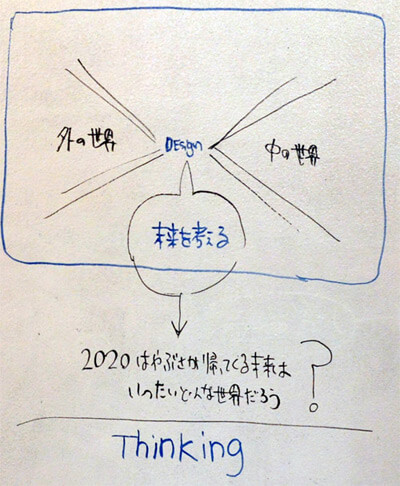 外の世界 DEsign 中の世界
未来を考える
2020 はやぶさが帰ってくる未来は
いったいどんな世界だろう ?
Thinking